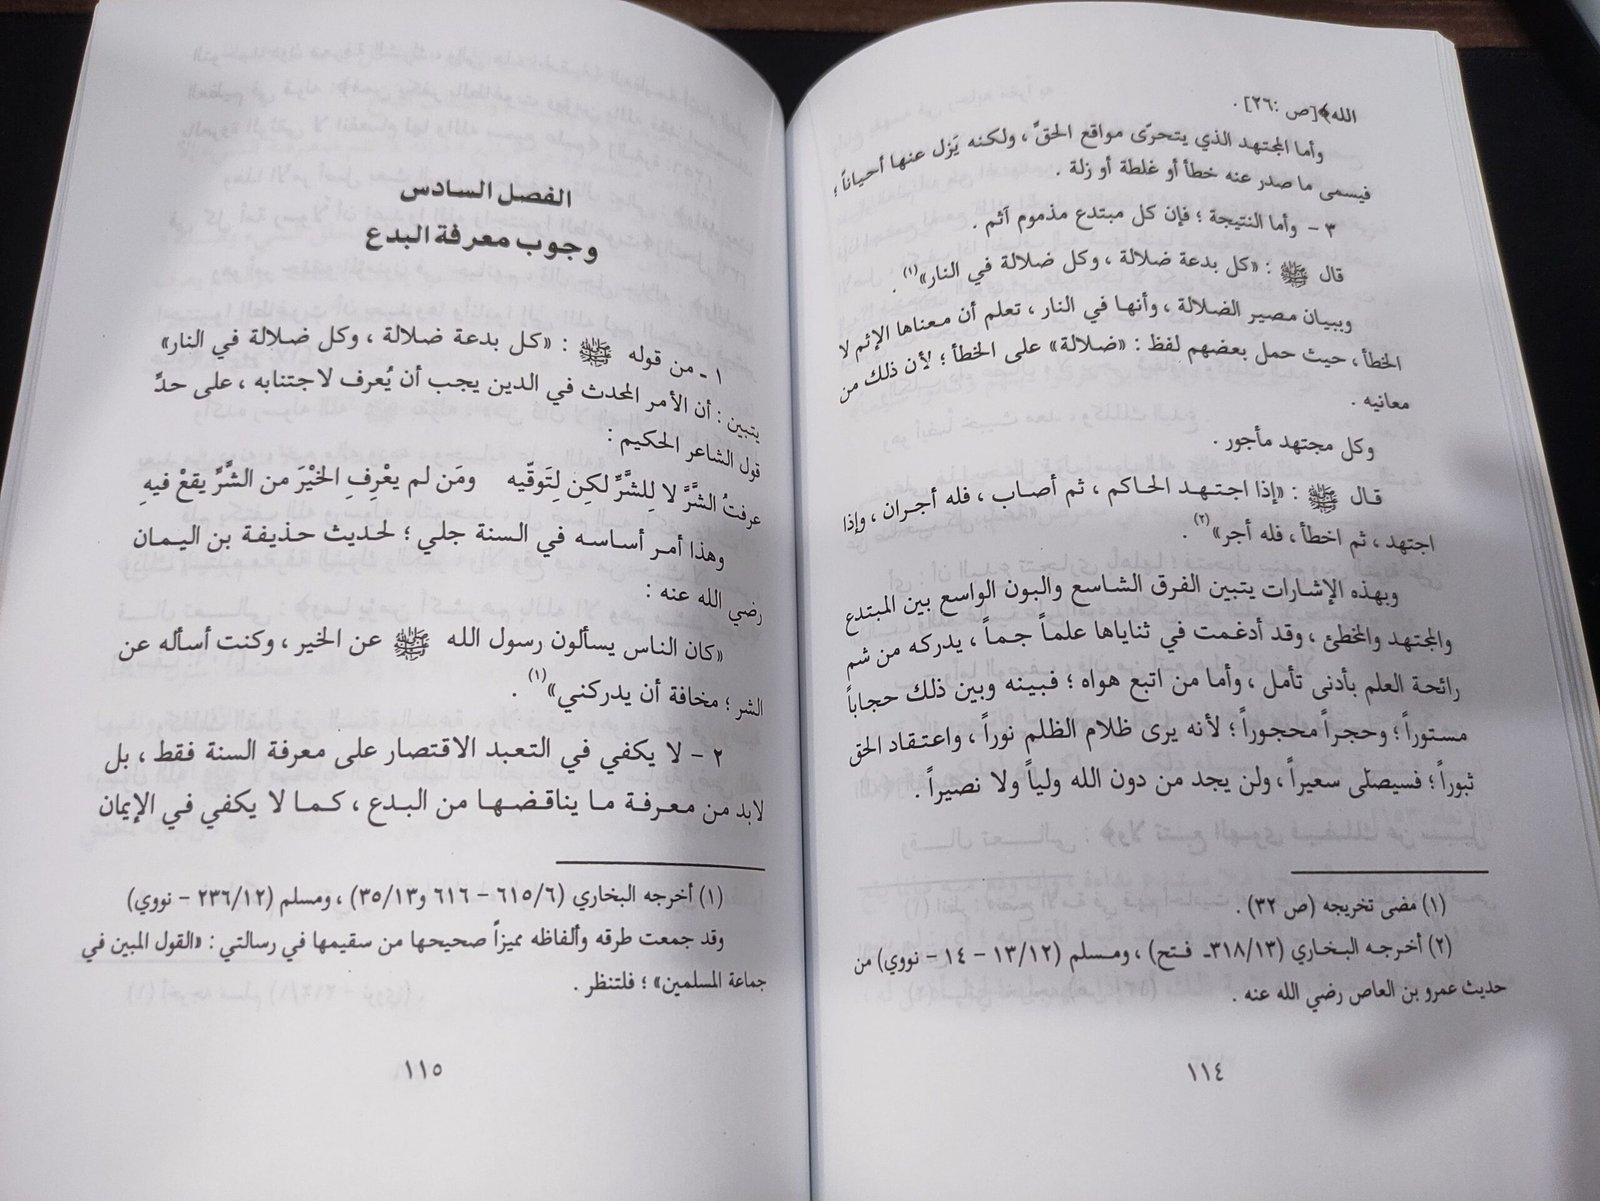 الله﴾[ص :٢٦] .
وأما المجتهد الذي يتحرّى مواقع الحقِّ ، ولكنه يَزل عنها أحياناً ؛
فيسمى ما صدر عنه خطأ أو غلطة أو زلة .
٣ - وأما النتيجة ؛ فإن كل مبتدع مذموم آثم .
قال ﷺ : «كل بدعة ضلالة ، وكل ضلالة في النار»(١) .
وببيان مصير الضلالة ، وأنها في النار ، تعلم أن معناها الإثم لا
الخطأ ، حيث حمل بعضهم لفظ : «ضلالة» على الخطأ ؛ لأن ذلك من
معانيه .
وكل مجتهد مأجور .
قال ﷺ : «إذا اجتهد الحاكم ، ثم أصاب ، فله أجران ، وإذا
اجتهد ، ثم اخطأ ، فله أجر»(٢) .
وبهذه الإشارات يتبين الفرق الشاسع والبون الواسع بين المبتدع
والمجتهد والمخطئ ، وقد أدغمت في ثناياها علماً جماً ، يدركه من شم
رائحة العلم بأدنى تأمل ، وأما من اتبع هواه ؛ فبينه وبين ذلك حجاباً
مستوراً ؛ وحجراً محجوراً ؛ لأنه يرى ظلام الظلم نوراً ، واعتقاد الحق
ثبوراً ؛ فسيصلى سعيراً ، ولن يجد من دون الله ولياً ولا نصيراً .
(١) مضى تخريجه (ص ٣٢) .
(٢) أخرجه البخاري (٣١٨/١٣ـ فتح) ، ومسلم (١٣/١٢ - ١٤ - نووي) من
حديث عمرو بن العاص رضي الله عنه .
١١٤
الفصل السادس
وجوب معرفة البدع
١ ـ من قوله ﷺ : «كل بدعة ضلالة ، وكل ضلالة في النار»
يتبين : أن الأمر المحدث في الدين يجب أن يُعرف لاجتنابه ، على حدِّ
قول الشاعر الحكيم :
عرفتُ الشَّرَّ لا لِلشَّرِّ لكِن لِتَوقّيه ومَن لم يعْرِفِ الخيْرَ من الشَّرِّ يقعْ فيهِ
وهذا أمر أساسه في السنة جلي ؛ لحديث حذيفة بن اليمان
رضي الله عنه :
«كان الناس يسألون رسول الله ﷺ عن الخير ، وكنت أسأله عن
الشر ؛ مخافة أن يدركني»(١) .
٢ - لا يكفي في التعبد الاقتصار على معرفة السنة فقط ، بل
لابد من معرفة ما يناقضها من البدع ، كما لا يكفي في الإيمان
(١) أخرجه البخاري (٦١٥/٦ - ٦١٦ و٣٥/١٣) ، ومسلم (٢٣٦/١٢ - نووي)
وقد جمعت طرقه وألفاظه مميزاً صحيحها من سقيمها في رسالتي : «القول المبين في
جماعة المسلمين» ؛ فلتنظر .
١١٥